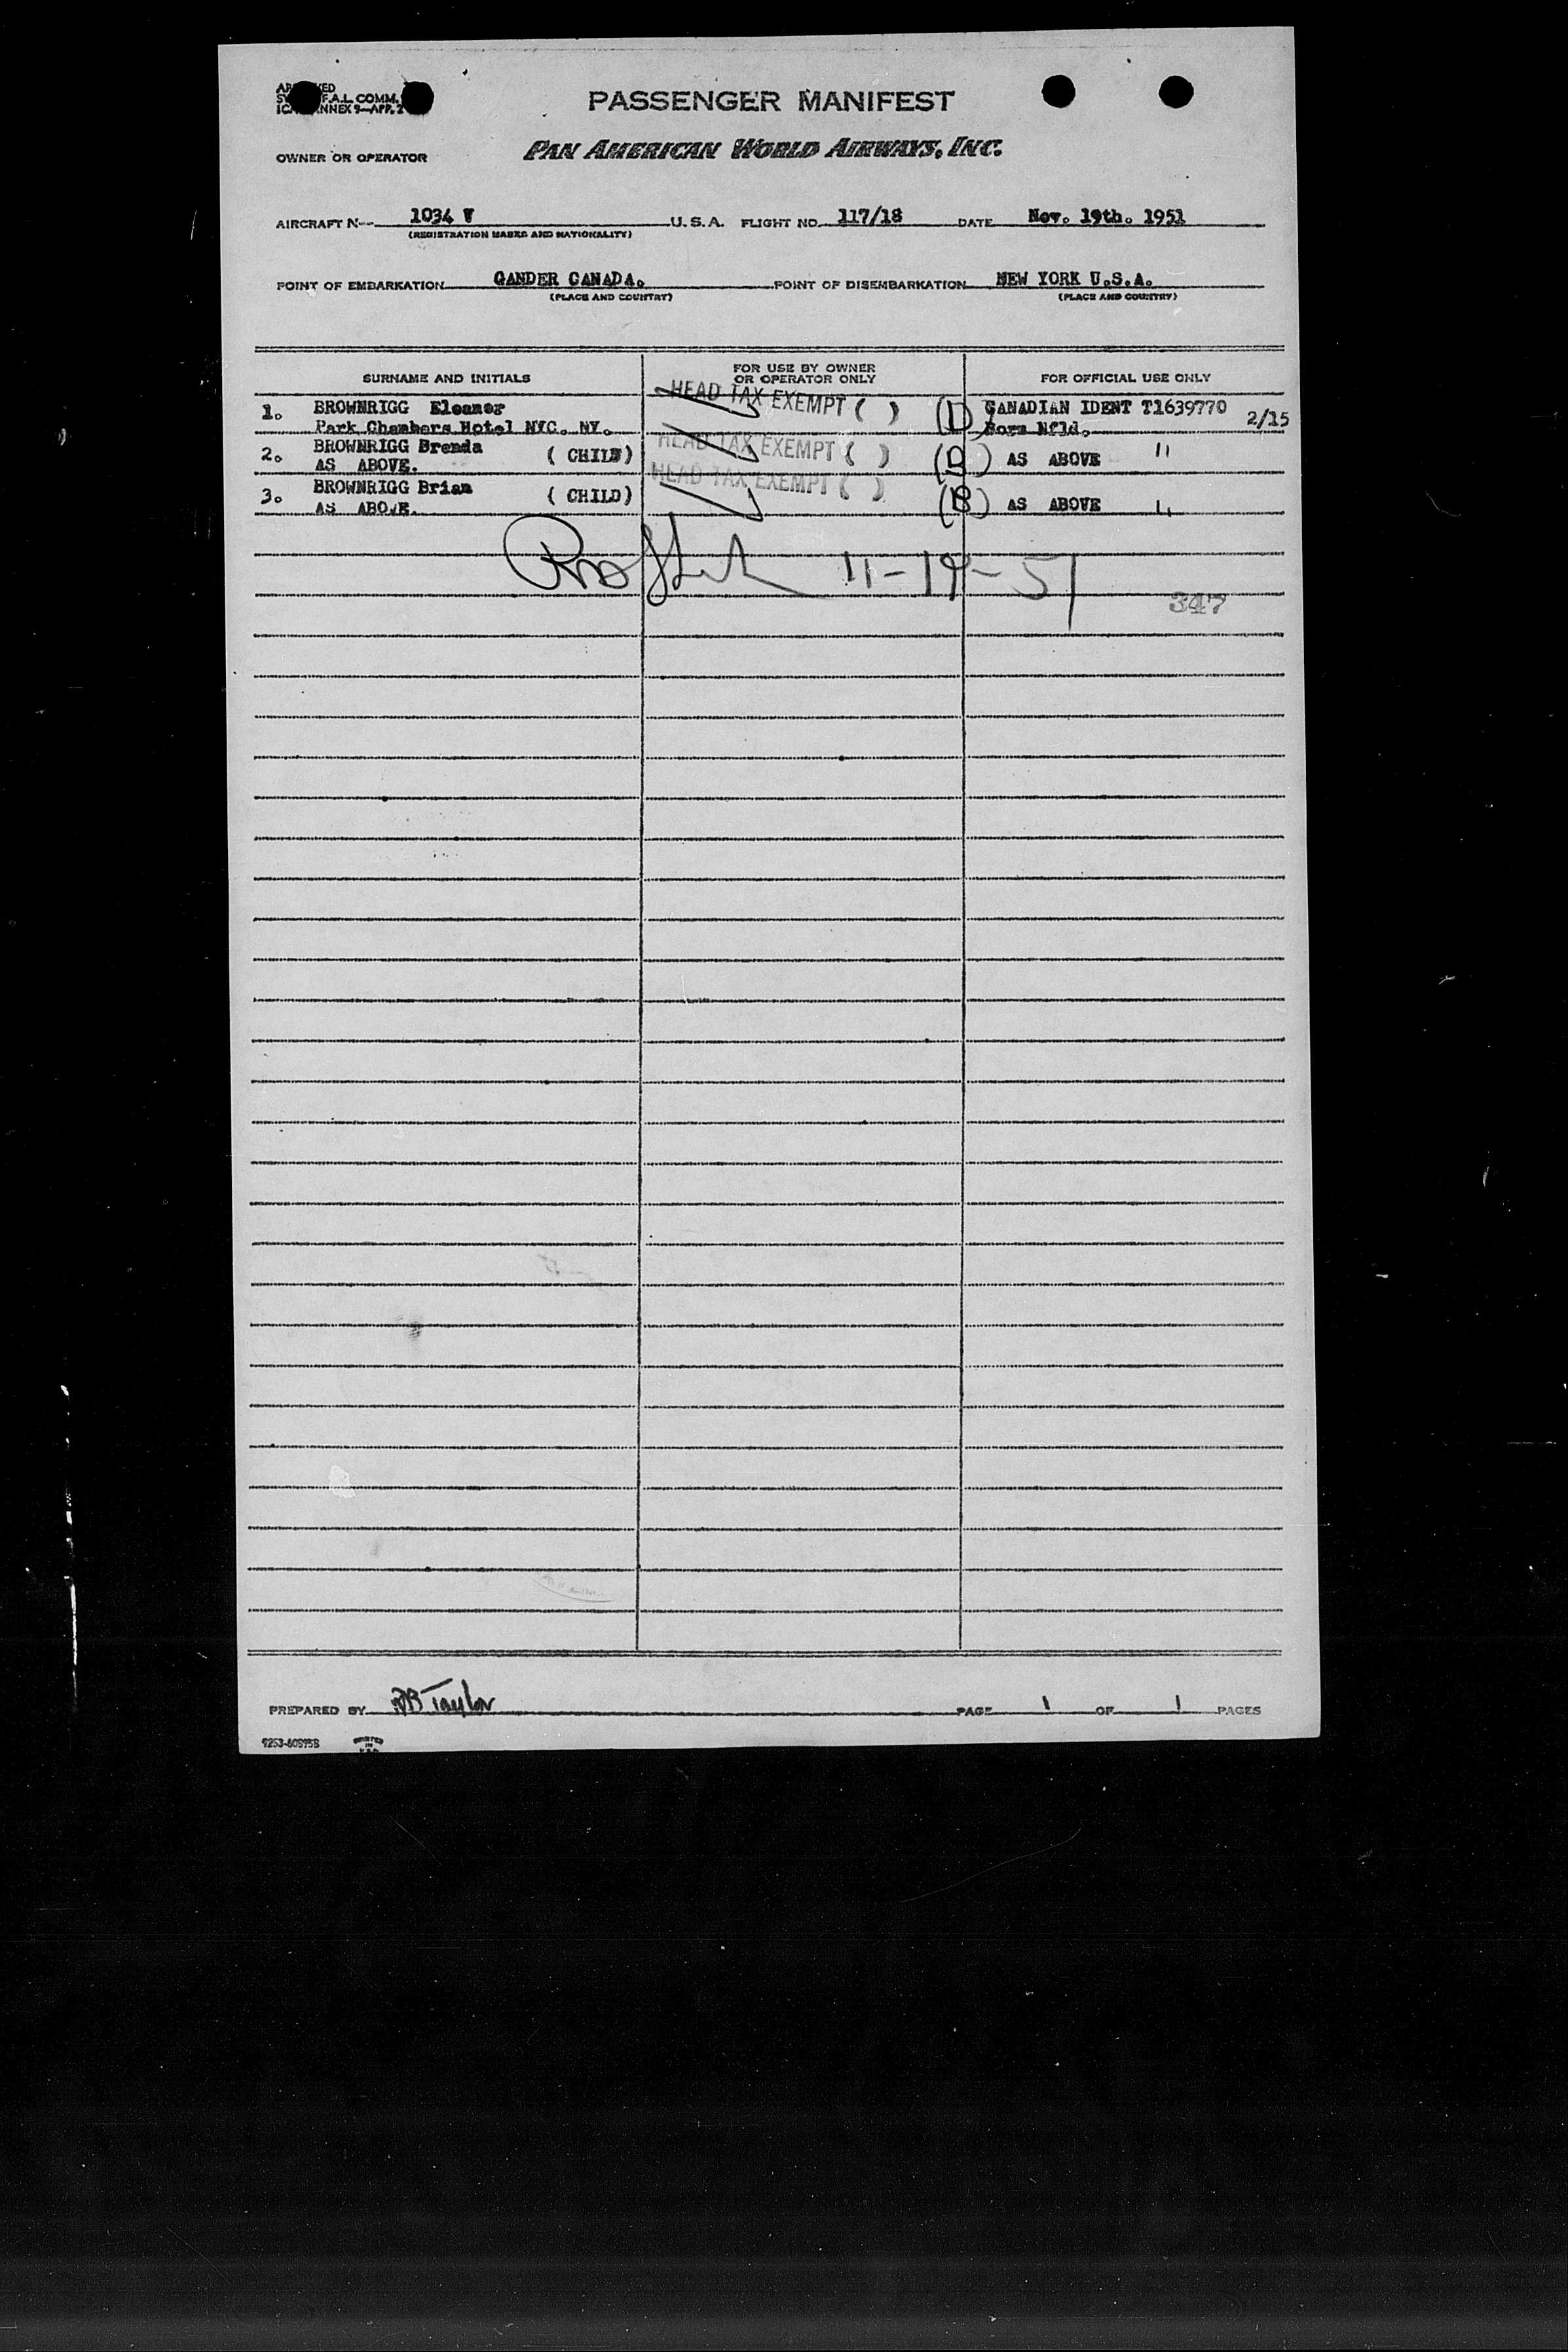 PASSENGER MANIFEST
F.A.L. COMM.
OWNER OR OPERATOR
PAN AMERICAN WORLD AIRWAYS, INC.
AIRCRAFT N-- 1034 V U.S.A. FLIGHT NO. 117/18 DATE Nov. 19th. 1951
(REGISTRATION MARKS AND NATIONALITY)
POINT OF EMBARKATION GANDER CANADA. POINT OF DISEMBARKATION NEW YORK U.S.A.
(PLACE AND COUNTRY) (PLACE AND COUNTRY)
SURNAME AND INITIALS
FOR USE BY OWNER
OR OPERATOR ONLY
FOR OFFICIAL USE ONLY
1. BROWNRIGG Eleanor HEAD TAX EXEMPT ( ) (D) CANADIAN IDENT T1639770 2/15
Park Chambers Hotel NYC. NY. Born Nfld.
2. BROWNRIGG Brenda ( CHILD) HEAD TAX EXEMPT ( ) (D) AS ABOVE "
AS ABOVE.
3. BROWNRIGG Brian ( CHILD) HEAD TAX EXEMPT ( ) (B) AS ABOVE "
AS ABOVE.
11-19-51
347
PREPARED BY Taylor PAGE 1 OF 1 PAGES
9253-608958
PRINTED
IN